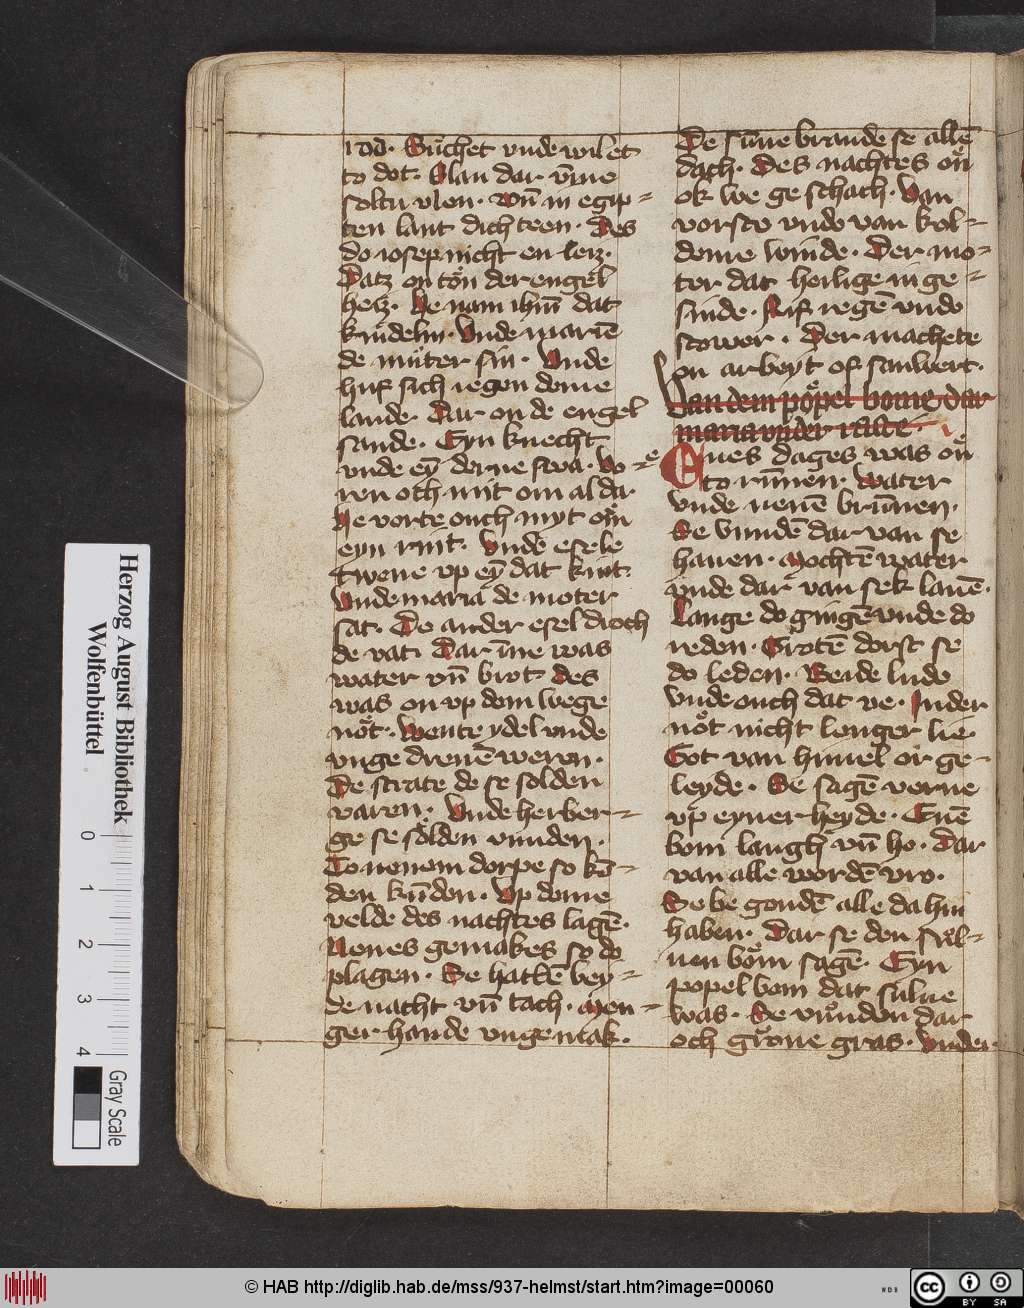 rod. Suͤchet vnde wil et
to dot. Slan dar vm̄me
soltu vlen. Vn̄ in egip⸗
ten lant dich teen. Des
do iosep nicht en leiz.
Datz on ton̄ der engel
heiz. He nam ihm̄ dat
kindelin. Vnde mariē
de muter sin. Vnde
huf sich iegen deme
lande. Dar on de engel
sande. Eyn knecht
vnde eȳ derne swa. Vo⸗
ren och mit om al da.
He vorte ouch myt om̄
eyn rint. Vnde esele
twene vp eȳ dat kint.
Vnde maria de moter
sat. De ander esel droch
de vat. Dar in̄e was
water vn̄ brot. Des
was on vp dem wege
not. Wente ydel vnde
vnge dreuē weren.
De strate de se solden
varen. Vnde herber⸗
ge se solden vinden.
To nenem dorpe so kō⸗
den kūden. Vp deme
velde des nachtes lagē.
Nenes gemakes so do
plagen. Se hattē bey⸗
de nacht vn̄ tach. Men⸗
ger hande vngemak.
De sūne brande se allē
dach. Des nachtes on̄
ok we geschach. Van
vorste vnde van kol⸗
deme winde. Der mo⸗
ter dat heilige in ge⸗
sinde. Rif regē vnde
scower. Der machete
on arbeyt oft sau wert.
Van dem popel bome dar
maria vnder raste.
Enes dages was on̄
to rinnen. Water
vnde nenē brūnen.
Se vundē dar van se
hauen. Mochtē water
vnde dar van sek lauē.
Lange do gingē vnde do
reden. Grotē dorst se
do leden. Beide lude
vnde ouch dat ve. In der
not nicht lenger lie.
Got van himel or ge⸗
leyde. Se sagē verne
vp eyner heyde. Enē
bom langh vn̄ ho. Dar
van alle wordē vro.
Se be gondē alle da hin
haben. Dar se den sul⸗
uen bom sagē. Eyn
popel bom dat sulue
was. Se vunden dar
och grone gras. Vnder
Herzog August Bibliothek
Wolfenbüttel
0 1 2 3 4
Gray Scale
© HAB http://diglib.hab.de/mss/937-helmst/start.htm?image=00060
WDB
cc BY SA